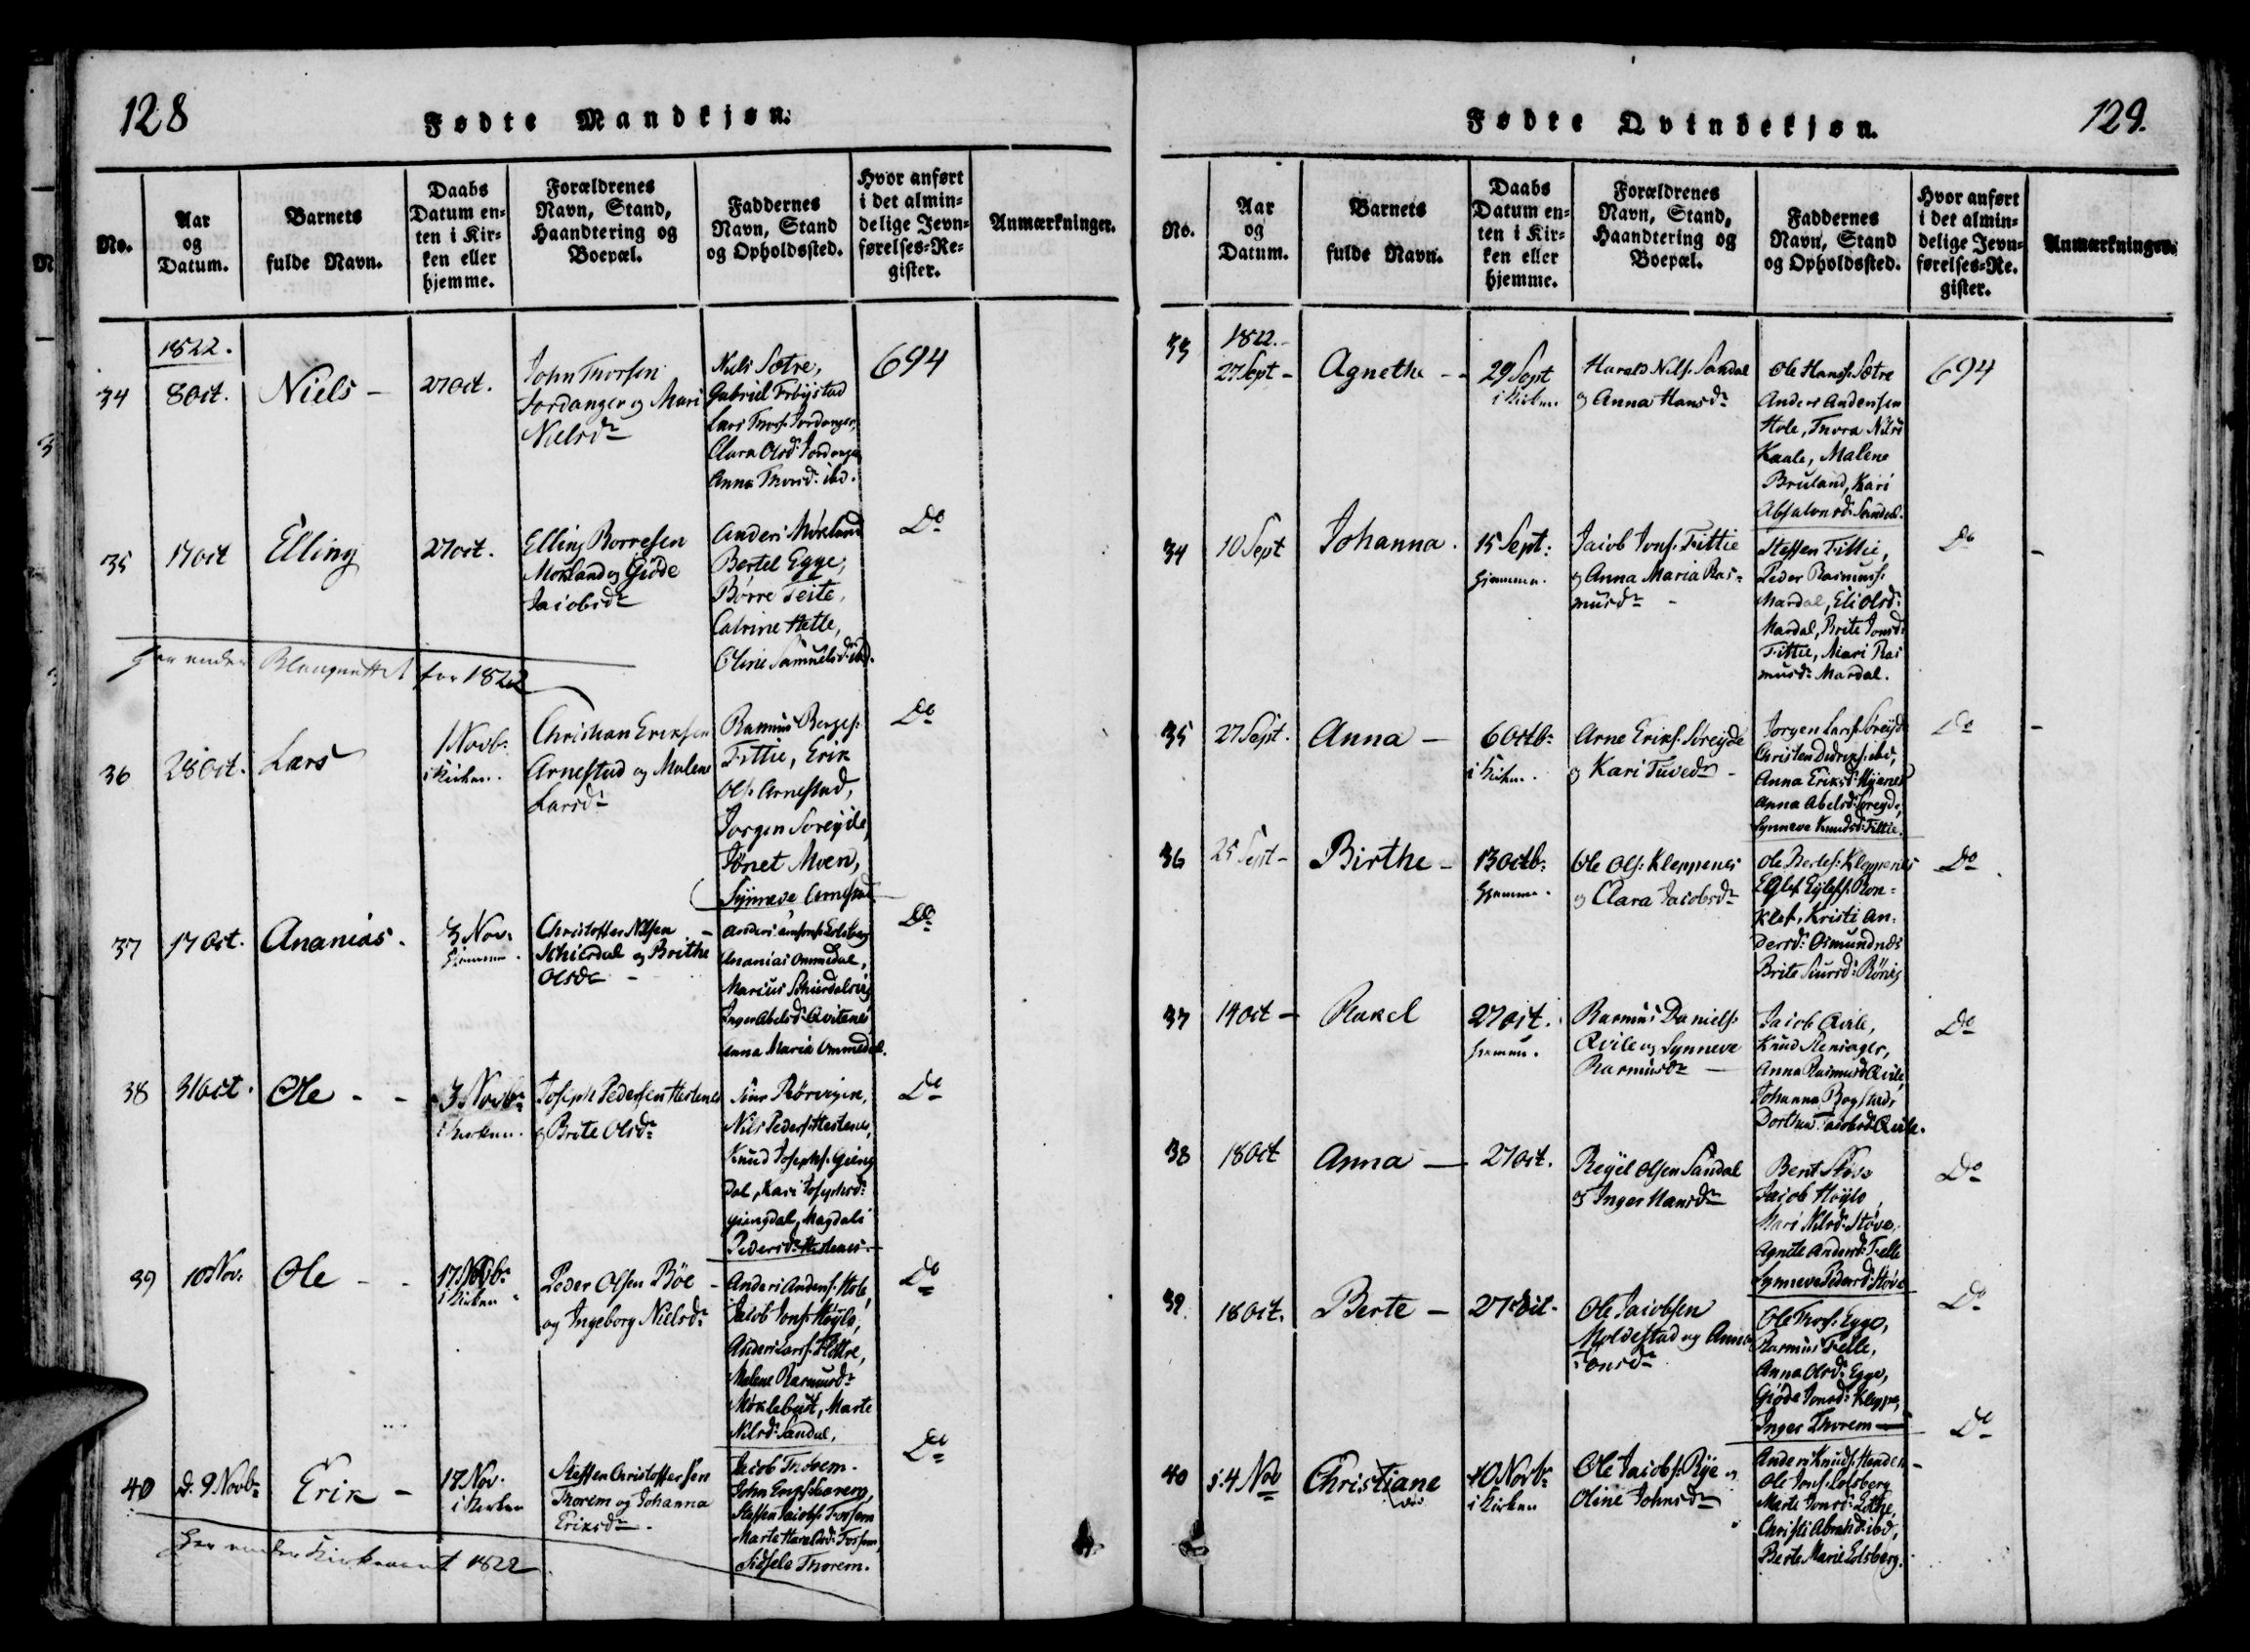 128
Fødte Mandkjøn.
No.
Aar
og
Datum.
Barnets
fulde Navn.
Daabs
Datum en-
ten i Kir-
ken eller
hjemme.
Forældrenes
Navn, Stand,
Haandtering og
Boepæl.
Faddernes
Navn, Stand
og Opholdssted.
Hvor anført
i det almin-
delige Jevn-
førelses-Re-
gister.
Anmærkninger.
1822.
34
8 Oct.
Niels -
27 Oct.
John Thorsen
Jordanger og Mari
Nielsdr
Niels Sætre,
Gabriel Frøystad
Lars Thors: Jordanger,
Clara Olsd: Jordanger
Anna Thorsd: ibd.
694
35
17 Oct
Elling
27 Oct.
Elling Borresen
Morland og Giøde
Jacobsdr
Anders Morland
Bertel Egge,
Børre Teite,
Catrine Hette,
Oline Samuelsd: ibd.
Do
for 1822
36
28 Oct.
Lars
1 Novbr
i Kirken.
Christian Eriksen
Arnestad og Malene
Larsdr
Rasmus Berges:
Fittie, Erik
Ols: Arnestad,
Jorgen Soreyde,
Jønet Moen,
Synneve Arnestad
Do
37
17 Oct.
Ananias.
3 Nov:
Hjemme.
Christoffer Nilsen
Schierdal og Brithe
Olsdr -
Ananias Ommedal,
Marcus Schierdalseig
Inger Abelsd: Qvitenes
Anna Maria Ommedal.
Do
38
31 Oct.
Ole - -
3 Novbr
i Kirken.
Joseph Pedersen Hestenes
og Brite Olsdr
Siur Rørvigen,
Nils Peders: Hestenes,
Knud Josephs: Gieng
dal, Kari Josephsd:
Giengdal, Magdali
Pedersdr Hestenes.
Do
39
10 Nov.
Ole - -
17 Novbr
i Kirken
Peder Olsen Böe -
og Ingeborg Nielsdr
Anders Anders: Hole,
Jacob Jons: Høylo,
Anders Lars: Flottre,
Malene Rasmusdr
Møklebust, Marte
Nilsd: Sandal,
Do
40
d. 9 Novbr
Erik -
17 Nov.
i Kirken
Steffen Christoffersen
Thorem og Johanna
Eriksdr.
Jacob Thorem.
Steffen Jacobs: Fossem
Marte Haraldsd: Fossem,
Sidsele Thorem.
Do
1822
129.
Fødte Qvindekjøn.
No.
Aar
og
Datum.
Barnets
fulde Navn.
Daabs
Datum en-
ten i Kir-
ken eller
hjemme.
Forældrenes
Navn, Stand,
Haandtering og
Boepæl.
Faddernes
Navn, Stand
og Opholdssted.
Hvor anført
i det almin-
delige Jevn-
førelses-Re-
gister.
Anmærkninger.
33
1822.
27 Sept -
Agnethe -
29 Sept
i Kirken
Harald Nils: Sandal
og Anna Hansdr
Ole Hans: Sætre
Anders Andersen
Hole, Thora Nilsd
Kaale, Malene
Bruland, Kari
Absalonsd: Sandal.
694
34
10 Sept
Johanna.
15 Sept:
Hjemme.
Jacob Jons: Fittie
og Anna Maria Ras-
musdr -
Steffen Fittie,
Peder Rasmuss:
Mardal, Eli Olsd:
Mardal, Brite Jonsd:
Fittie, Mari Ras
musd: Mardal.
Do
-
35
27 Sept.
Anna -
6 Octb:
i Kirken.
Arne Eriks: Søreyde
og Kari Tuvedr -
Jorgen Lars: Søreyde
Christen Didriks: ibd,
Anna Eriksd: Hyenes
Anna Abelsd: Søreyde,
Synneve Knudsd: Fittie.
Do
-
36
25 Sept -
Birthe -
13 Octb:
Hjemme.
Ole Ols: Kleppenes
og Clara Jacobsdr
Ole Bertels: Kleppenes
klef, Kristi An-
dersd: Osmundnes
Brite Siursd: Rönig
Do
37
14 Oct -
Rakel
27 Oct.
Hjemme.
Rasmus Daniels:
Qvile og Synneve
Rasmusdr -
Jacob Qvile,
Knud Steensager,
Anna Rasmusd Qvile,
Johanna Bogstad,
Dorthea Jacobsd: Qvile.
Do
38
18 Oct
Anna -
27 Oct.
Reyel Olsen Sandal
og Inger Hansdr
Bent Støve
Jacob Høylo
Mari Nilsd: Støve,
Agnete Andersd: Felle
Synneve Pedersd: Støve
Do
39
18 Oct.
Berte -
27 Oct.
Ole Jacobsen
Moldestad og Anna
Jonsdr
Ole Thors: Egge,
Rasmus Felle,
Anna Olsdr Egge,
Giøde Jonsd: Kleppe,
Inger Thorem -
Do
40
4 Nov
Christiane
10 Novbr
i Kirken
Ole Jacobs: Rye og
Oline Johnsdr
Anders Knuds: Henden
Ole Jons: Eolsberg
Marte Jonsd: Lothe,
Christi Abrahd: ibd,
Berte Marie Eolsberg.
Do